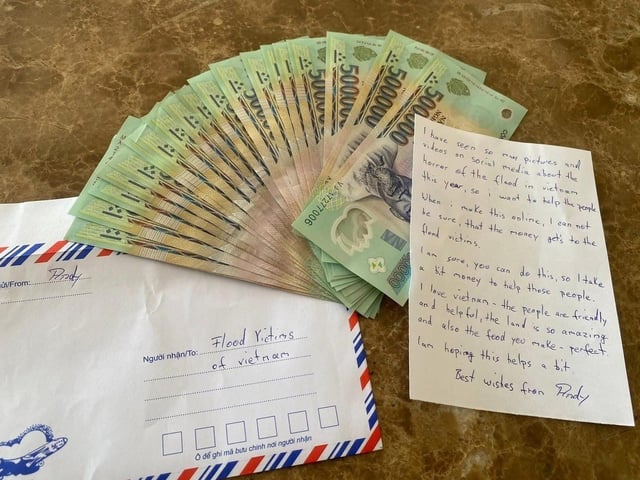 500000
500000
500000
500000
I have seen so many pictures and
videos on social media about the
horror of the flood in vietnam
this year, so i want to help the people
When i make this online, I can not
be sure, that the money gets to the
flood victims.
I am sure, you can do this, so I take
a bit money to help those people.
I love vietnam - the people are friendly
and helpful, the land is so amazing
and also the food you make - perfect.
I am hoping this helps a bit.
Best wishes from Andy
ửi/From: Andy
Người nhận/To: Flood Victims
of vietnam
Ô để ghi mã bưu chính nơi người nhận